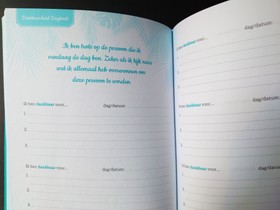 Dankbaarheid Dagboek
Ik ben trots op de persoon die ik
vandaag de dag ben. Zeker als ik kijk naar
wat ik allemaal heb overwonnen om
deze persoon te worden.
Ik ben dankbaar voor... dag/datum:
1.
2.
3.
Ik ben dankbaar voor... dag/datum:
1.
2.
3.
Ik ben dankbaar voor... dag/datum:
1.
dag/datum:
Ik ben dankbaar voor...
1.
2.
3.
dag/datum:
Ik ben dankbaar voor...
1.
2.
3.
dag/datum:
Ik ben dankbaar voor...
1.
2.
3.
dag/datum:
Ik ben dankbaar voor...